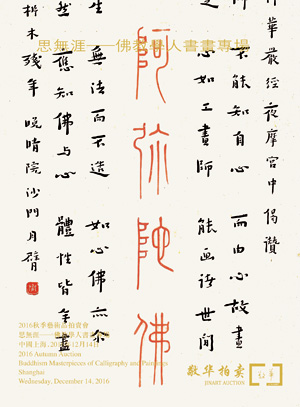 思無涯——佛教學人書畫專場
華嚴經夜摩宮中偈讚
不能知自心 而由心故畫
心如工畫師 能画諸世间
阿弥陀佛
生 無法而不造 如心佛亦尒
然 應知佛与心 體性皆無盡
析木殘年 晚晴院沙門月臂
2016秋季藝術品拍賣會
思無涯——佛教學人書畫專場
中國上海, 2016年12月14日
2016 Autumn Auction
Buddhism Masterpieces of Calligraphy and Paintings
Shanghai
Wednesday, December 14, 2016
敬华拍卖
JINART AUCTION